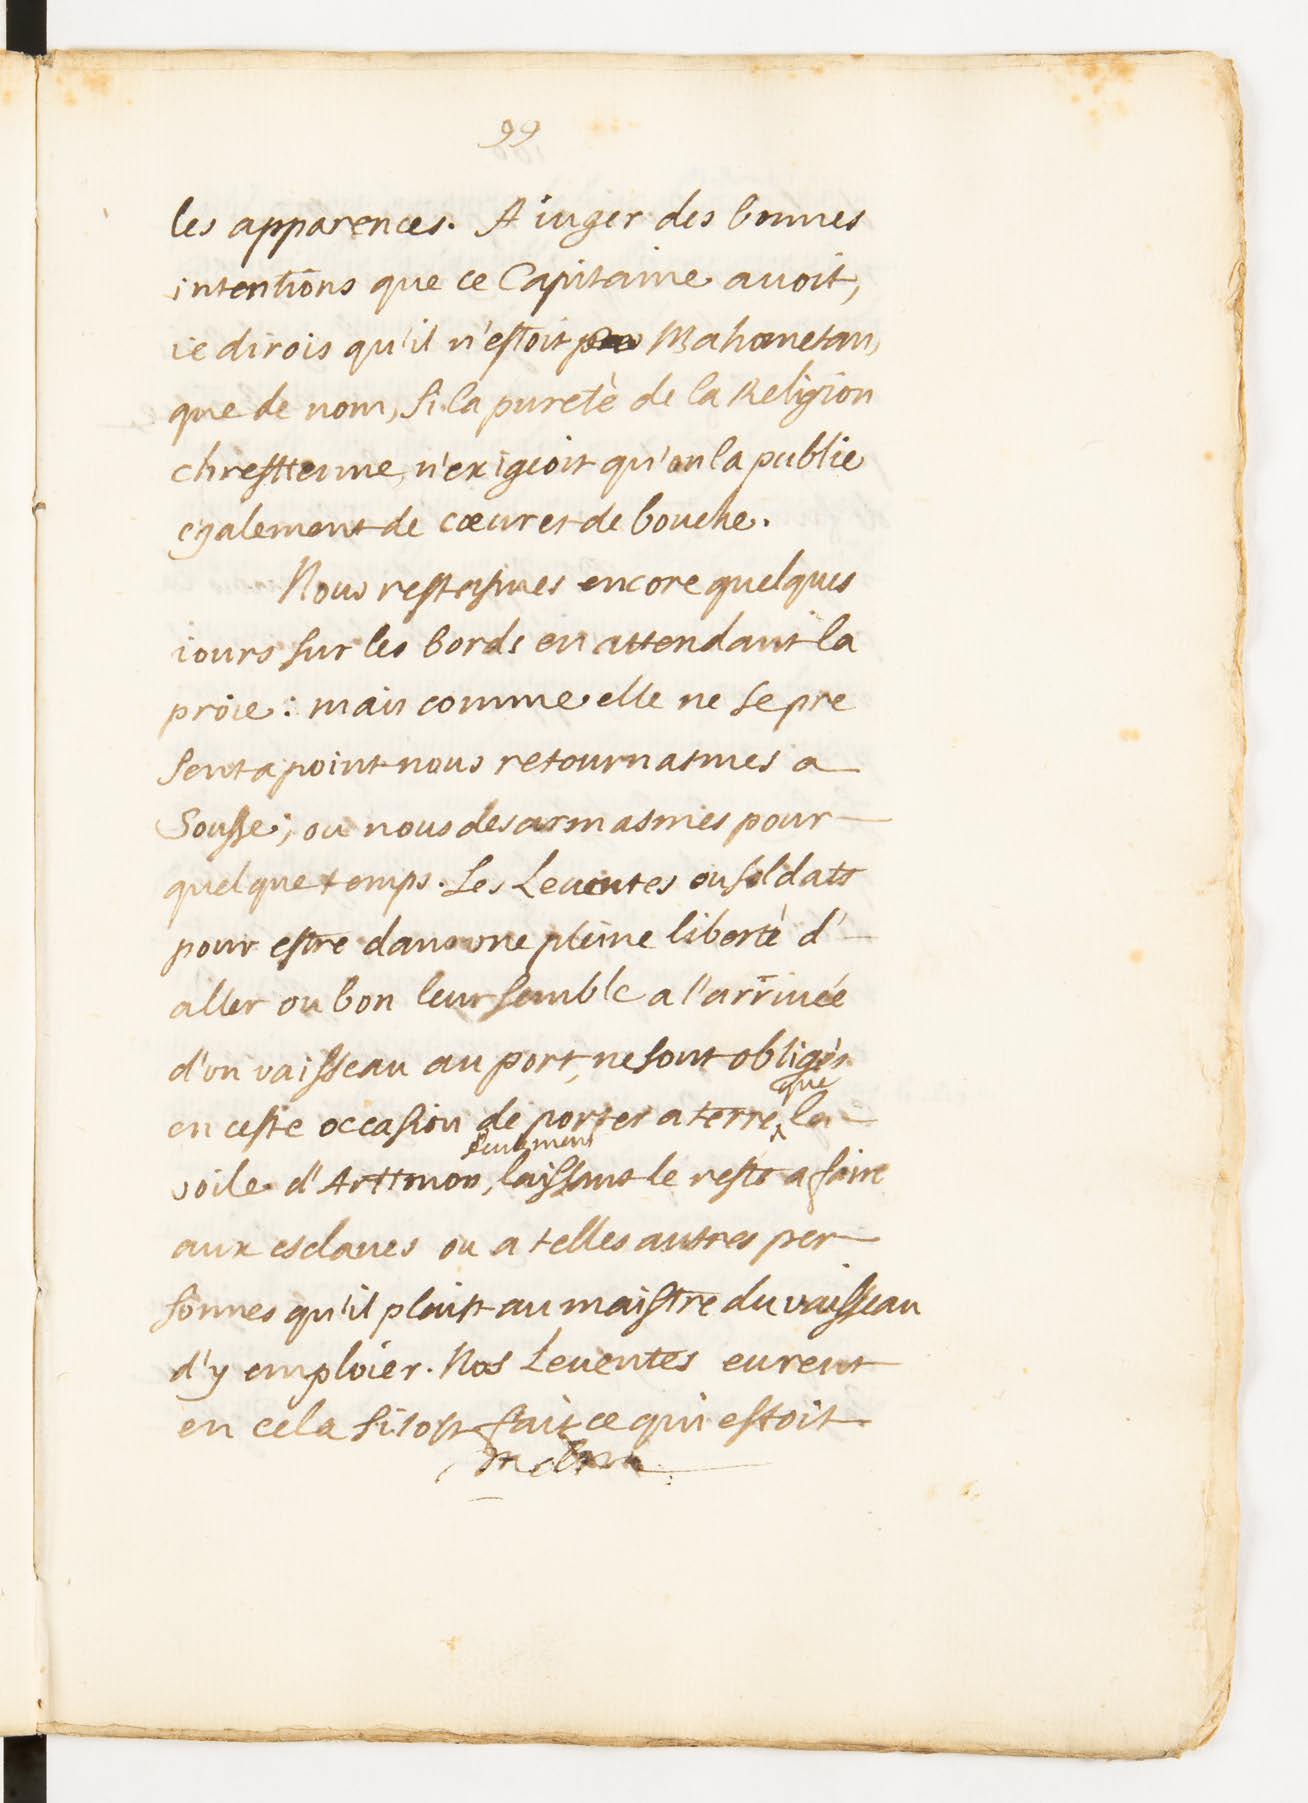 99
les apparences. A iuger des bonnes
intentions que ce Capitaine auoit,
ie dirois qu'il n'estoit Mahometan,
que de nom, si la puretè de la Religion
chrestienne, n'exigeoit qu'on la publie
egalement de cœur et de bouche.
Nous restasmes encore quelques
iours sur les bords en attendant la
proie: mais comme elle ne se pre
senta point nous retournasmes a
Sousse; ou nous desarmasmes pour
quelque temps. Les Leuentes ou soldats
pour estre dans vne pleine libertè d'
aller ou bon leur semble a l'arriuée
d'vn vaisseau au port, ne sont obligès
que
en ceste occasion de porter a terre, la
seulement
voile d'Artimon, laissans le reste a faire
aux esclaues ou a telles autres per
sonnes qu'il plaist au maistre du vaisseau
d'y emploier. Nos Leuentes eurent
en cela si tost fait ce qui estoit